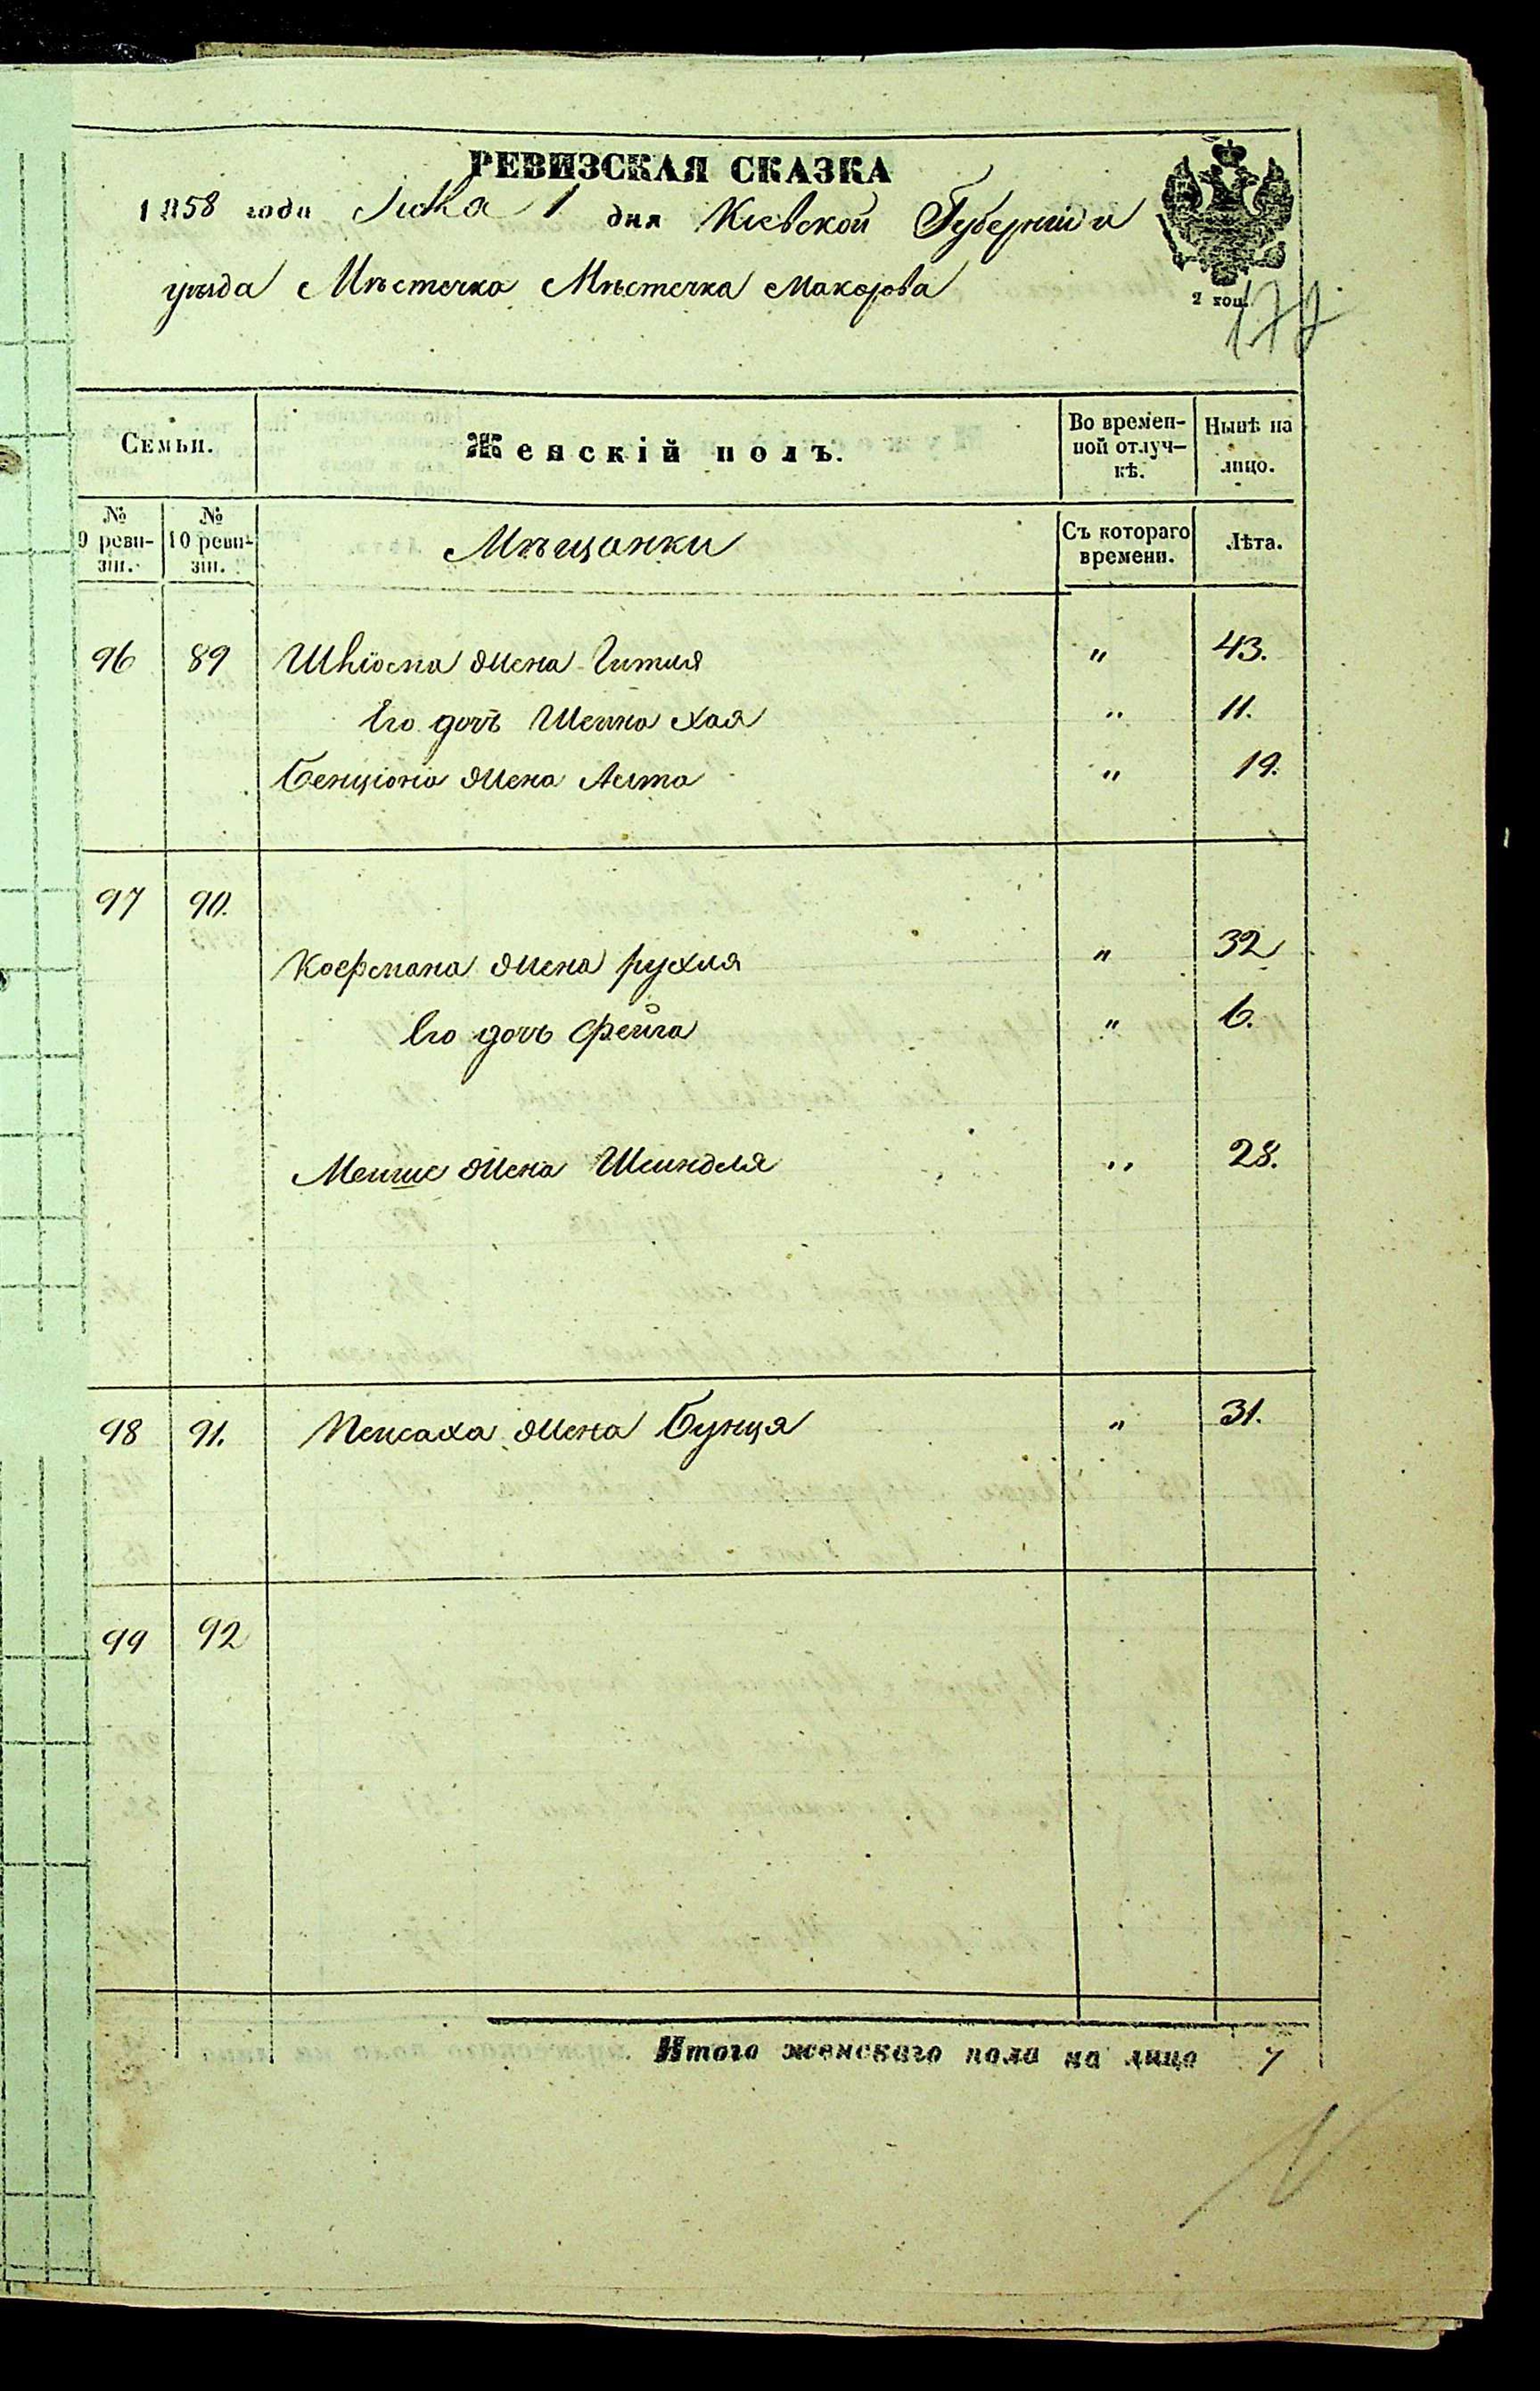 РЕВИЗСКАЯ СКАЗКА
1858 года Мая 1 дня Кіевской Губерніи и
уѣзда Мѣстечка Мѣстечка Макарова
2 коп.
Семьи.
Женскій полъ.
Во времен-
ной отлуч-
кѣ.
Нынѣ на
лицо.
№
9 реви-
зіи.
№
10 реви-
зіи.
Мѣщанки
Съ котораго
времени.
Лѣта.
96 89 жена Гитля " 43.
Его дочь Шейна Хая " 11.
Бенціона жена " 19.
97 90.
Кофмана жена рухля " 32
Его дочь Фейга " 6.
жена Шейндля " 28.
98 91. Пейсаха жена Бунця " 31.
99 92
Итого женскаго пола на лицо 7